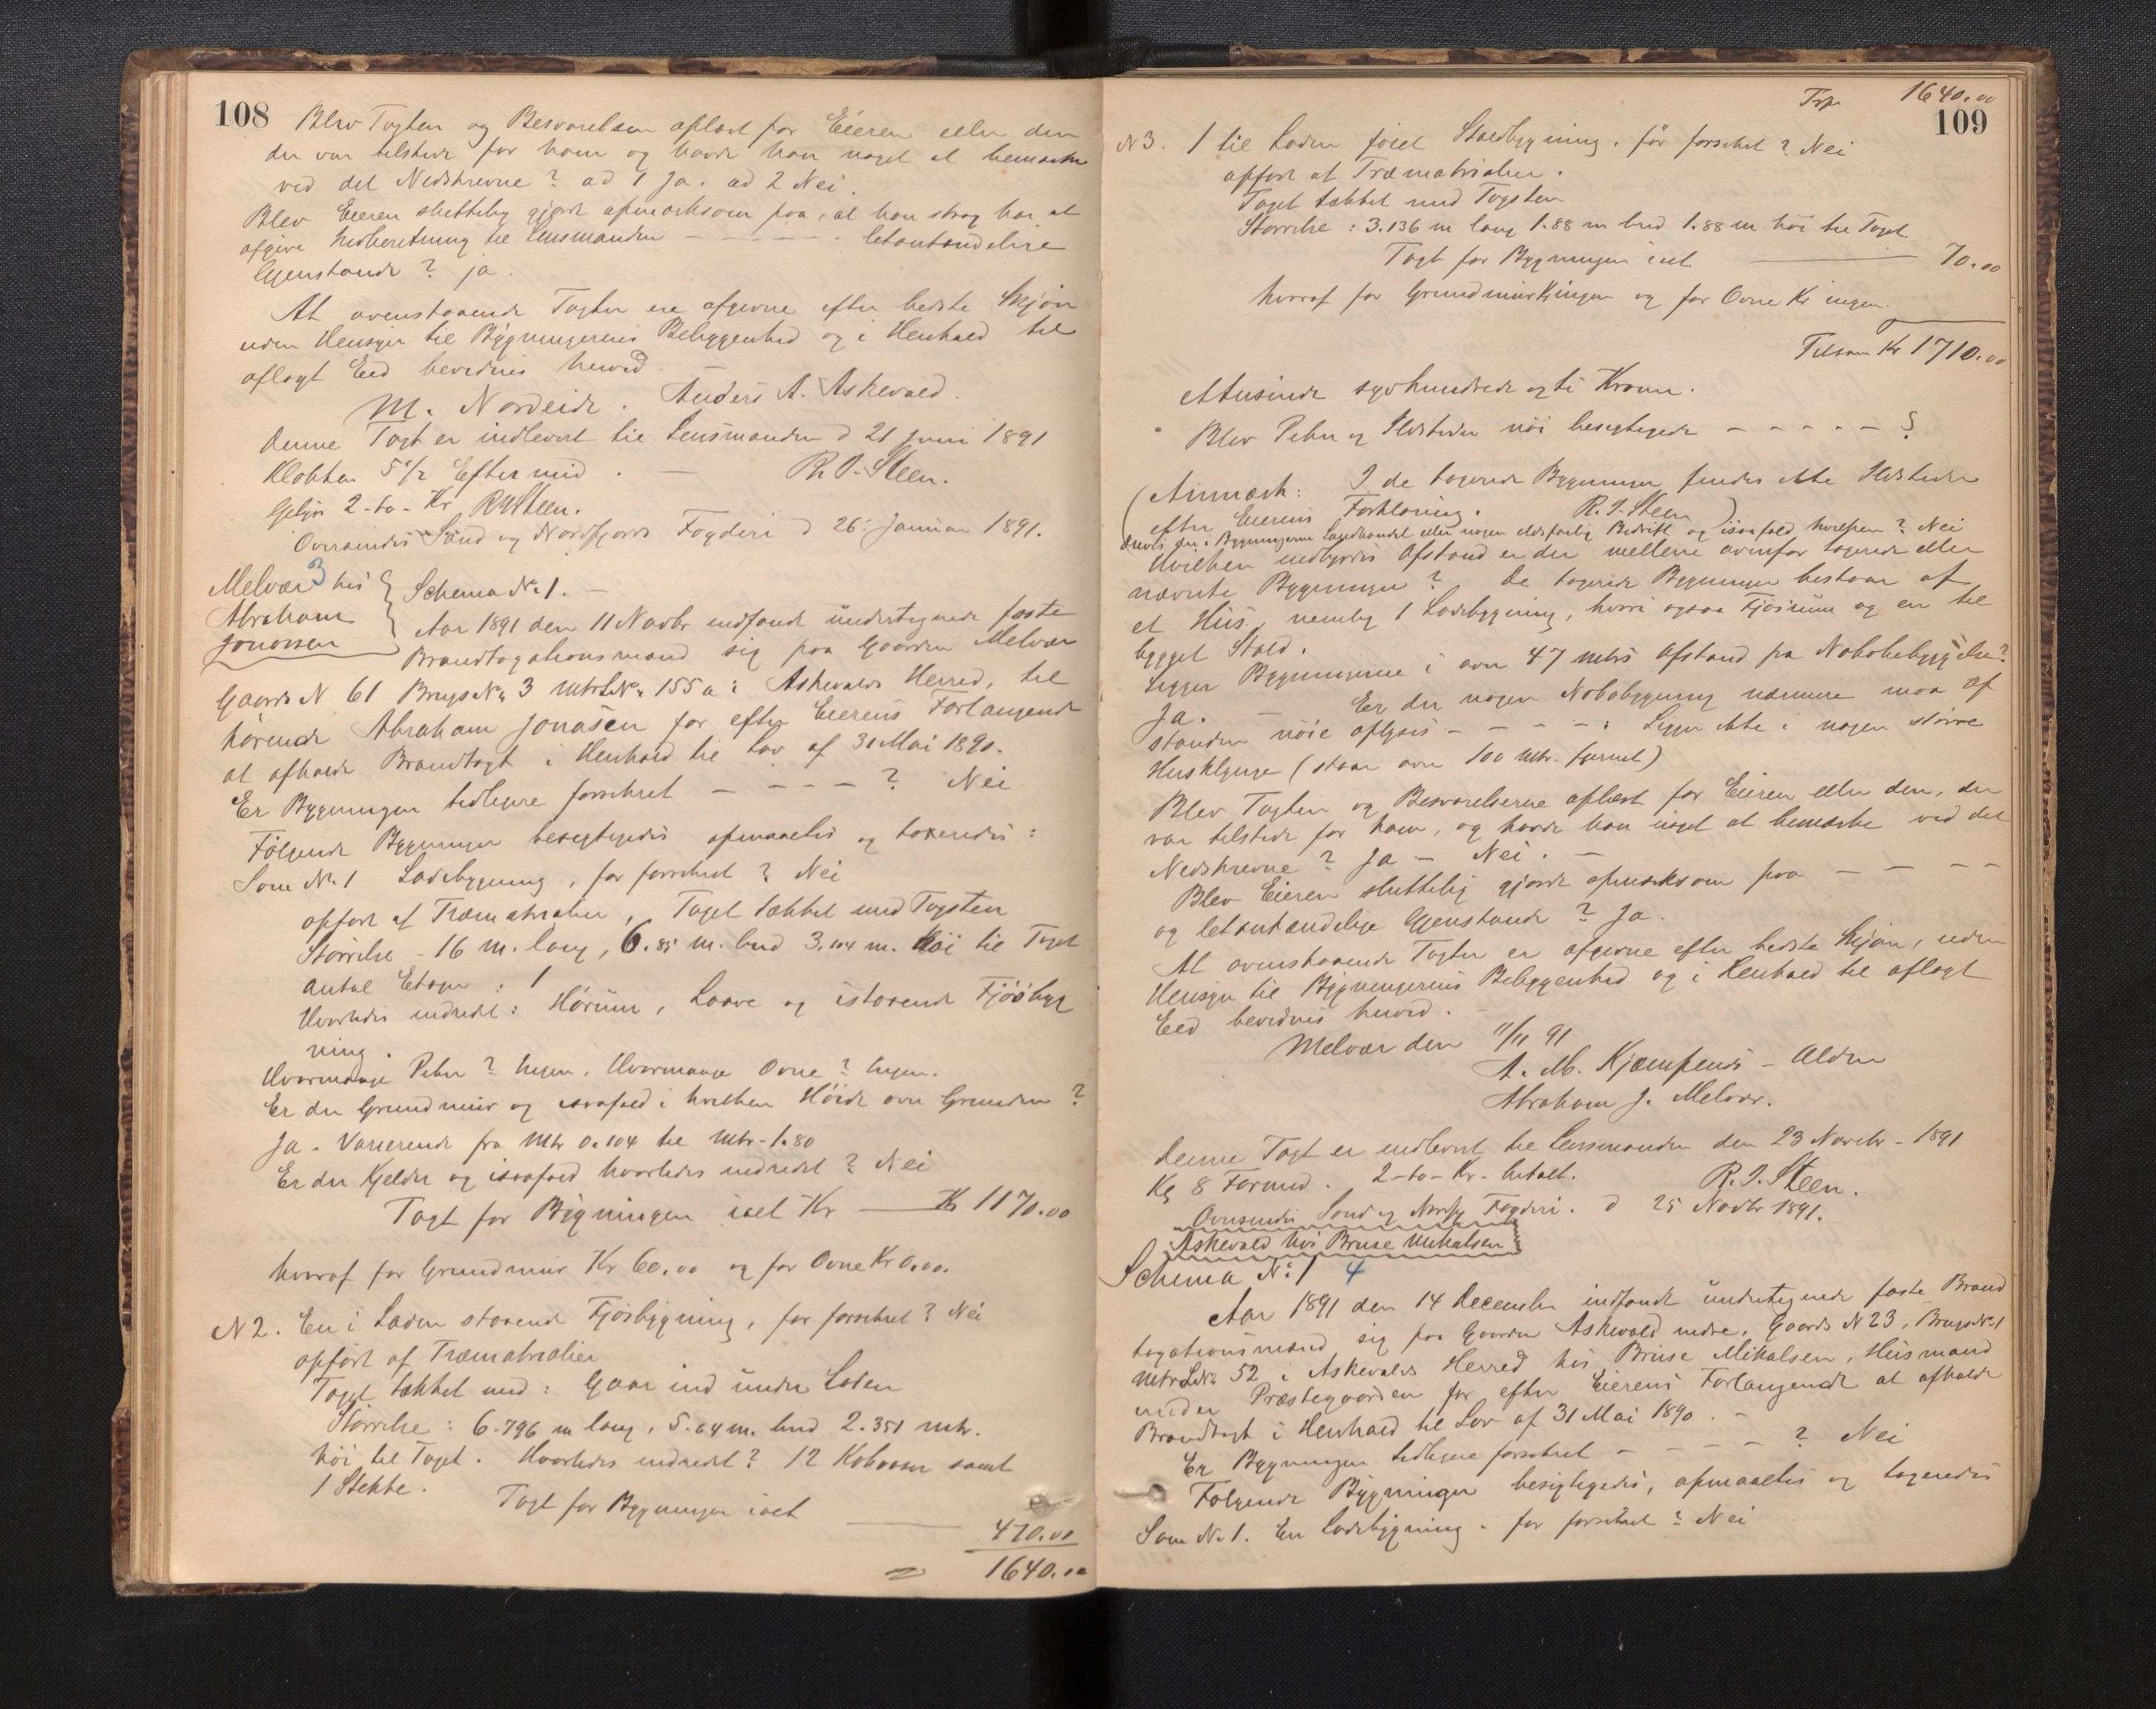 108
Blev Taxten og Besvarelsen oplæst for Eieren eller den
der var tilstede for ham og havde han noget at bemærke
ved det Nedskrevne? ad 1 Ja. ad 2 Nei.
Blev Eieren sluttelig gjort opmærksom paa, at han strax har at
afgive Indberetning til Lensmanden - - - - - letantændelige
Gjenstande? ja.
At ovenstaaende Taxter ere afgivne efter bedste Skjøn
uden Hensyn til Bygningernes Beliggenhed og i Henhold til
aflagt Eed bevidnes herved.
M. Nordeide. Anders A. Askevold.
Denne Taxt er indleveret til Lensmanden d 21 Juni 1891
Klokken 5 1/2 Eftermid. - R. I. Steen.
Gebyr 2-to- Kr RISteen.
Oversendes Sønd og Nordfjords Fogderi d 26: Januar 1891.
Melvær 3 hos
Abraham
Jonassen
Schema No 1. -
Aar 1891 den 11 Novbr indfandt undertegnede faste
Brandtaxationsmænd sig paa Gaarden Melvær
Gaards N 61 Brugs No 3 Mtr. L No 155 a i Askevolds Herred, til
hørende Abraham Jonasen for efter Eierens Forlangende
at afholde Brandtaxt i Henhold til Lov af 31 Mai 1890.
Er Bygningen tidligere forsikret - - - - ? Nei
Følgende Bygninger besigtigedes opmaaltes og taxeredes:
Som No 1 Ladebygning, før forsikret? Nei
opført af Træmaterialier, Taget tækket med Tagsten
Størrelse - 16 m. lang, 6.85 m. bred 3.104 m. høi til Taget
Antal Etager: 1
Hvorledes indredet: Hørum, Laave og istaaende Fjøsbyg
ning.
Hvormange Piber? Ingen. Hvormange Ovne? Ingen.
Er der Grundmur og isaafald i hvilken Høide over Grunden?
Ja. Varierende fra Mtr 0.104 til Mtr - 1.80
Er der Kjelder og isaafald hvorledes indredet? Nei
Taxt for Bygningen ialt Kr - Kr 1170.00
hvoraf for Grundmur Kr 60,00 og for Ovne Kr 0.00.
N 2. En i Laden staaende Fjøsbygning, før forsikret? Nei
opført af Træmaterialier
Taget tækket med: Gaar ind under Laden
Størrelse: 6.796 m lang, 5.64 m. bred 2.351 mtr.
høi til Taget. Hvorledes indredet? 12 Kobaaser samt
1 Stekke.
Taxt for Bygningen ialt - 470.00
= 1640.00
109
Trp. 1640.00
N 3. 1 til Laden føiet Staldbygning. før forsikret? Nei
opført af Træmaterialier.
Taget tækket med Tagsten
Størrelse: 3.136 m lang 1.88 m bred 1.88 m høi til Taget.
Taxt for Bygningen ialt - 70.00
hvoraf for Grundmur Kr ingen og for Ovne Kr ingen.
Tilsam Kr 1710.00
Ettusinde syvhundrede og ti Kroner.
Blev Piber og Ildsteder nøi besigtigede - - - - - ?
(Anmærk: I de taxerede Bygninger findes ikke Ildsteder
efter Eierens Forklaring. R. I. Steen)
Drives der i Bygningerne Landhandel eller nogen ildsfarlig Bedrift og isaafald hvilken? Nei
Hvilken indbyrdes Afstand er der mellem ovenfor taxerede eller
nævnte Bygninger? De taxerede Bygninger bestaar af
et Hus, nemlig 1 Ladebygning, hvori ogsaa Fjøsrum og en til
bygget Stald.
Ligger Bygningerne i over 47 mtrs Afstand fra Nabobebyggelse?
Ja. - Er der nogen Nabobygning nærmere maa af
standen nøie oplyses - - - - : Ligger ikke i nogen større
Husklynge (staar over 100 mtr. fjernet)
Blev Taxten og Besvarelserne oplæst for Eieren eller den, der
var tilstede for ham, og havde han noget at bemærke ved det
Nedskrevne? Ja - Nei. -
Blev Eieren sluttelig gjort opmærksom paa - - - -
og letantændelige Gjenstande? Ja.
At ovenstaaende Taxter er afgivne efter bedste Skjøn, uden
Hensyn til Bygningernes Beliggenhed og i Henhold til aflagt
Eed bevidnes herved.
Melvær den 11/11 91
A. M. Kjempenes - Alden
Abraham J. Melvær.
Denne Taxt er indleveret til Lensmanden den 23 Novbr - 1891
Kl 8 Formid. 2-to- Kr. betalt. R. I. Steen.
Oversendes Sønd og Nordfj Fogderi. d 25 Novbr 1891.
Askevold hos Bruse Mikalsen
Schema No 1 4
Aar 1891 den 14 December indfandt undertegnede faste Brand
taxationsmænd sig paa Gaarden Askevold nedre, Gaards N 23, Brugs No 1
Mtr L No 52 i Askevolds Herred hos Bruse Mikalsen, Husmand
under Præstegaarden for efter Eierens Forlangende at afholde
Brandtaxt i Henhold til Lov af 31 Mai 1890. -
Er Bygningen tidligere forsikret - - - - ? Nei
Følgende Bygninger besigtigedes, opmaaltes og taxeredes
Som No 1. En Ladebygning. før forsikret? Nei